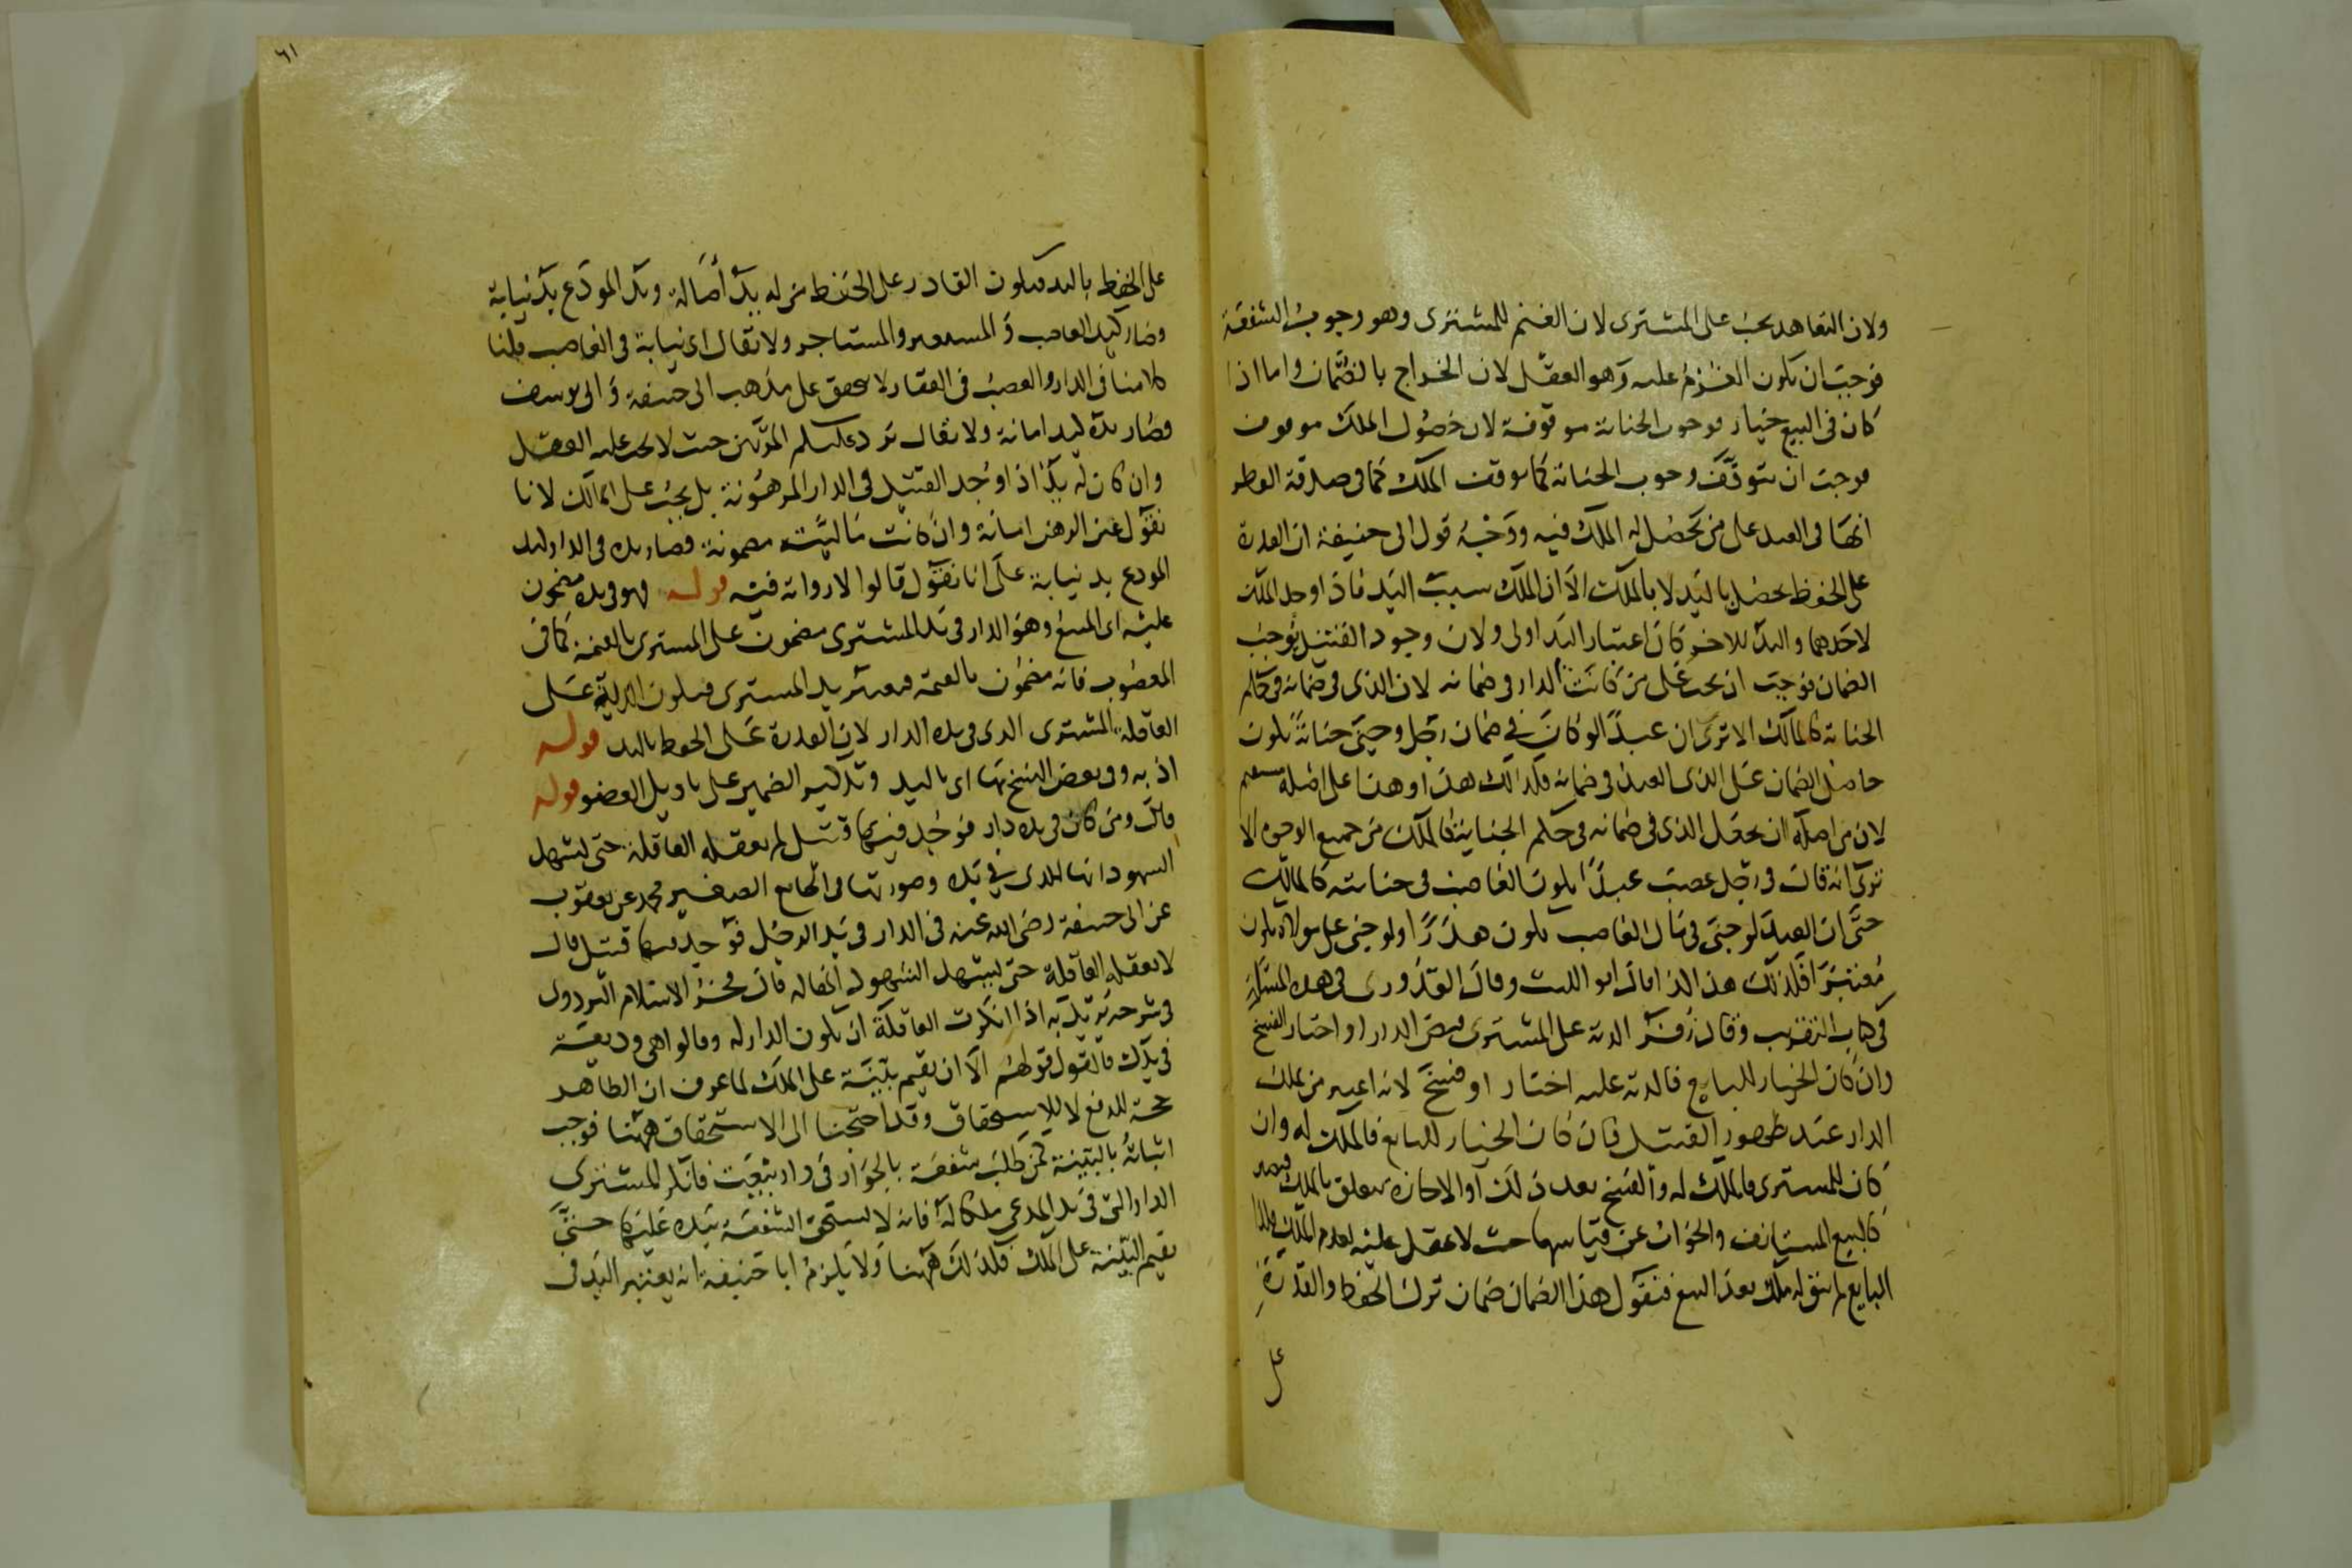 ولان التعاهد يجب على المشترى لان الغنم للمشترى وهو وجوب الشفعة
فوجب ان يكون الغرم عليه وهو العقل لان الخراج بالضمان واما اذا
كان فى البيع خيار فوجوب الجناية موقوفة لان حصول الملك موقوف
فوجب ان يتوقف وجوب الجناية كما توقف الملك كما فى صدقة الفطر
انها فى العبد على من يحصل له الملك فيه ووجه قول ابى حنيفة ان القدرة
على الحفظ يحصل باليد لا بالملك الا ان الملك سبب اليد فاذا وجد الملك
لاحدهما واليد للاخر كان اعتبار اليد اولى ولان وجود القتيل يوجب
الضمان فوجب ان يجب على من كانت الدار فى ضمانه لان الذى فى ضمانه فى حكم
الجناية كالمالك الا ترى ان عبدا لو كان فى ضمان رجل وجنى جناية يكون
حاصل الضمان على الذى العبد فى ضمانه فكذلك هذا وهذا على اصله مستقيم
لان من اصله ان يجعل الذى فى ضمانه فى حكم الجناية كالملك من جميع الوجوه الا
ترى انه قال فى رجل غصب عبدا يكون الغاصب فى جنايته كالمالك
حتى ان العبد لو جنى فى مال الغاصب يكون هدرا ولو جنى على مولاه يكون
معتبرا فكذلك هذا كذا قال ابو الليث وقال القدورى فى هذه المسئلة
فى كتاب التقريب وقال زفر الدية على المشترى قبض الدار او اختار الفسخ
وان كان الخيار للبايع فالدية عليه اختار او فسخ لانه اعتبر من يملك
الدار عند ظهور القتيل فان كان الخيار للبايع فالملك له وان
كان للمشترى فالملك له والفسخ بعد ذلك او الاجازة يتعلق بالملك فيصير
كالبيع المستانف والجواب عن قياسهما حيث لا عقل عليه لعدم الملك
البايع لم يبق له ملك بعد البيع فنقول هذا الضمان ضمان ترك الحفظ والقدرة
على
٦١
على الحفظ باليد فيكون القادر على الحفظ من له يد أصالة ويد المودع يد نيابة
وصار كيد الغاصب والمستعير والمستاجر ولا يقال اى نيابة فى الغاصب قلنا
كلامنا فى الدار والغصب فى العقار لا يتحقق على مذهب ابى حنيفة وابى يوسف
فصار يده كيد امانة ولا يقال يرد عليكم المرتهن حيث لا يجب عليه العقل
وان كان له يد اذا وجد القتيل فى الدار المرهونة بل يجب على المالك لانا
نقول عين الرهن امانة وان كانت ماليته مضمونة فصار يده فى الدار كيد
المودع يد نيابة على انا نقول قالوا لا رواية فيه قوله فهو فى يده مضمون
عليه اى المبيع وهو الدار فى يد المشترى مضمون على المشترى بالقيمة كما فى
المغصوب فانه مضمون بالقيمة فيعتبر يد المشترى فيكون الدية على
العاقلة المشترى الذى فى يده الدار لان القدرة على الحفظ باليد قوله
اذ به وفى بعض النسخ بها اى باليد وتذكير الضمير على تاويل العضو قوله
قال ومن كان فى يده دار فوجد فيها قتيل لم يعقله العاقلة حتى يشهد
الشهود انها للذى فى يده وصورتها فى الجامع الصغير محمد عن يعقوب
عن ابى حنيفة رضى الله عنه فى الدار فى يد الرجل فوجد فيها قتيل قال
لا يعقله العاقلة حتى يشهد الشهود انها له قال فخر الاسلام البزدوى
فى شرحه يريد به اذا انكرت العاقلة ان يكون الدار له وقالوا هى وديعة
فى يدك فالقول قولهم الا ان يقيم بينة على الملك لما عرف ان الظاهر
حجة للدفع لا للاستحقاق وقد احتجنا الى الاستحقاق ههنا فوجب
اثباته بالبينة كمن طلب شفعة بالجوار فى دار بيعت فانكر المشترى
الدار التى فى يد المدعى ملكا له فانه لا يستحق الشفعة بيده عليها حتى
يقيم البينة على الملك فكذلك ههنا ولا يلزم ابا حنيفة انه يعتبر اليد فى